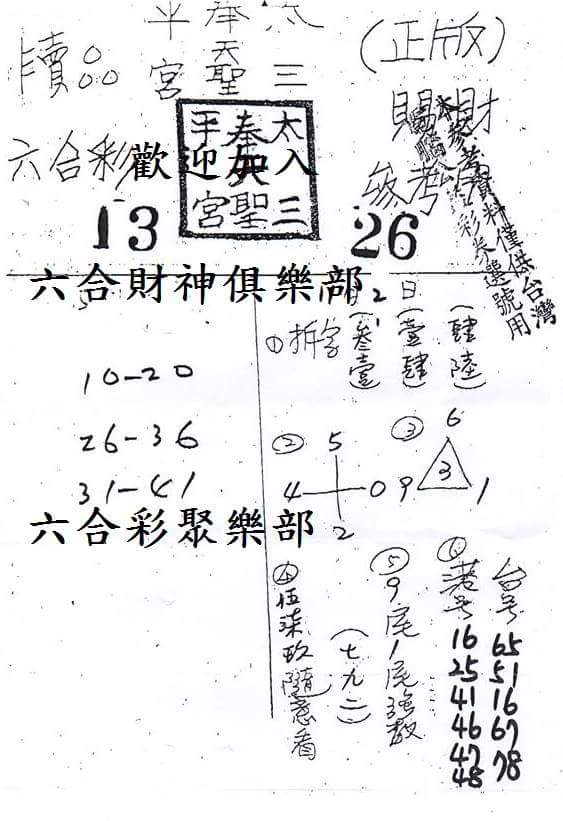 太奉平
三天聖宮
(正版)
六合彩
賜財
參考
歡迎加入
太三
奉天聖
平宮
本參考資料僅供台灣
彩券選號用
13
26
六合財神俱樂部
①拆字
(叁壹)
日(壹肆)
(肆陸)
10-20
26-36
31-41
② 5
4 0
2
③ 6
3
9 1
六合彩聚樂部
④伍柒玖隨意看
(七九二)
⑤9尾1尾強數
⑥港号 台号
16 65
25 51
41 16
46 67
47 78
48